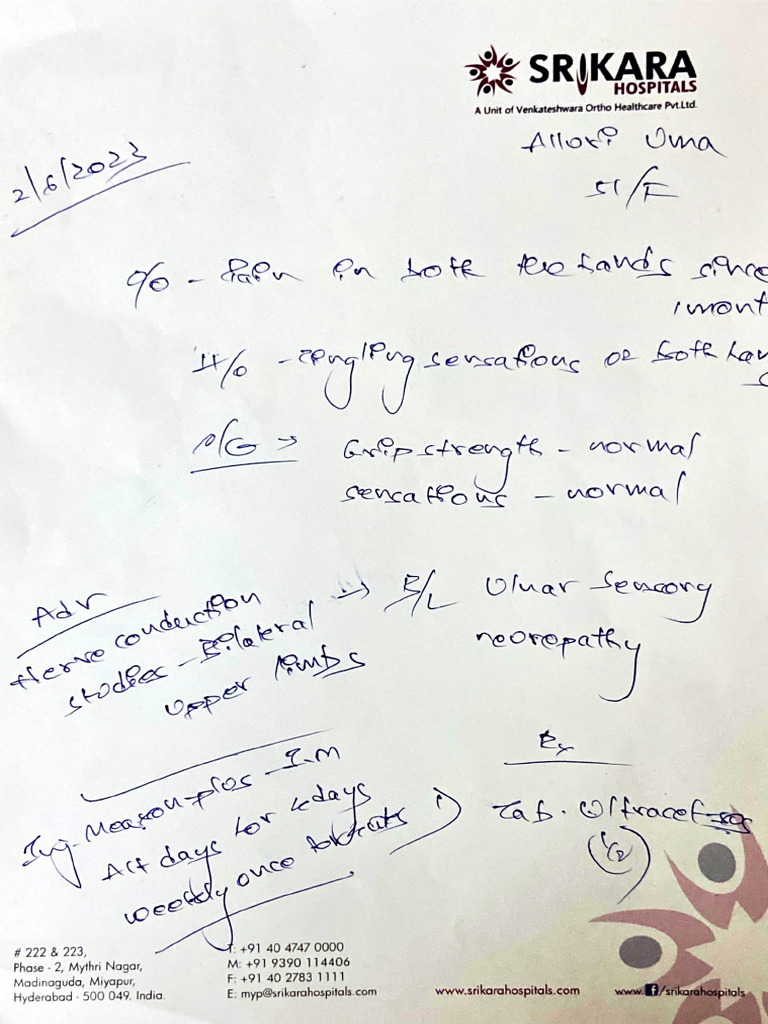 SRIKARA
HOSPITALS
A Unit of Venkateshwara Ortho Healthcare Pvt.Ltd.
2/6/2023
Allori Uma
51/F
c/o - Pain in both the hands since
1 mont
H/o - Tingling sensations of both han
O/G → Grip strength - normal
sensations - normal
Adv
Nerve conduction
studies - Bilateral
upper limbs
→ B/L Ulnar sensory
neoropathy
Rx
Inj. Meaxon-plus - I.M
Alt days for
weekly once
1) Tab. Ultracet
(1/2)
# 222 & 223,
Phase - 2, Mythri Nagar,
Madinaguda, Miyapur,
Hyderabad - 500 049. India.
T: +91 40 4747 0000
M: +91 9390 114406
F: +91 40 2783 1111
E: myp@srikarahospitals.com
www.srikarahospitals.com
www.f/srikarahospitals